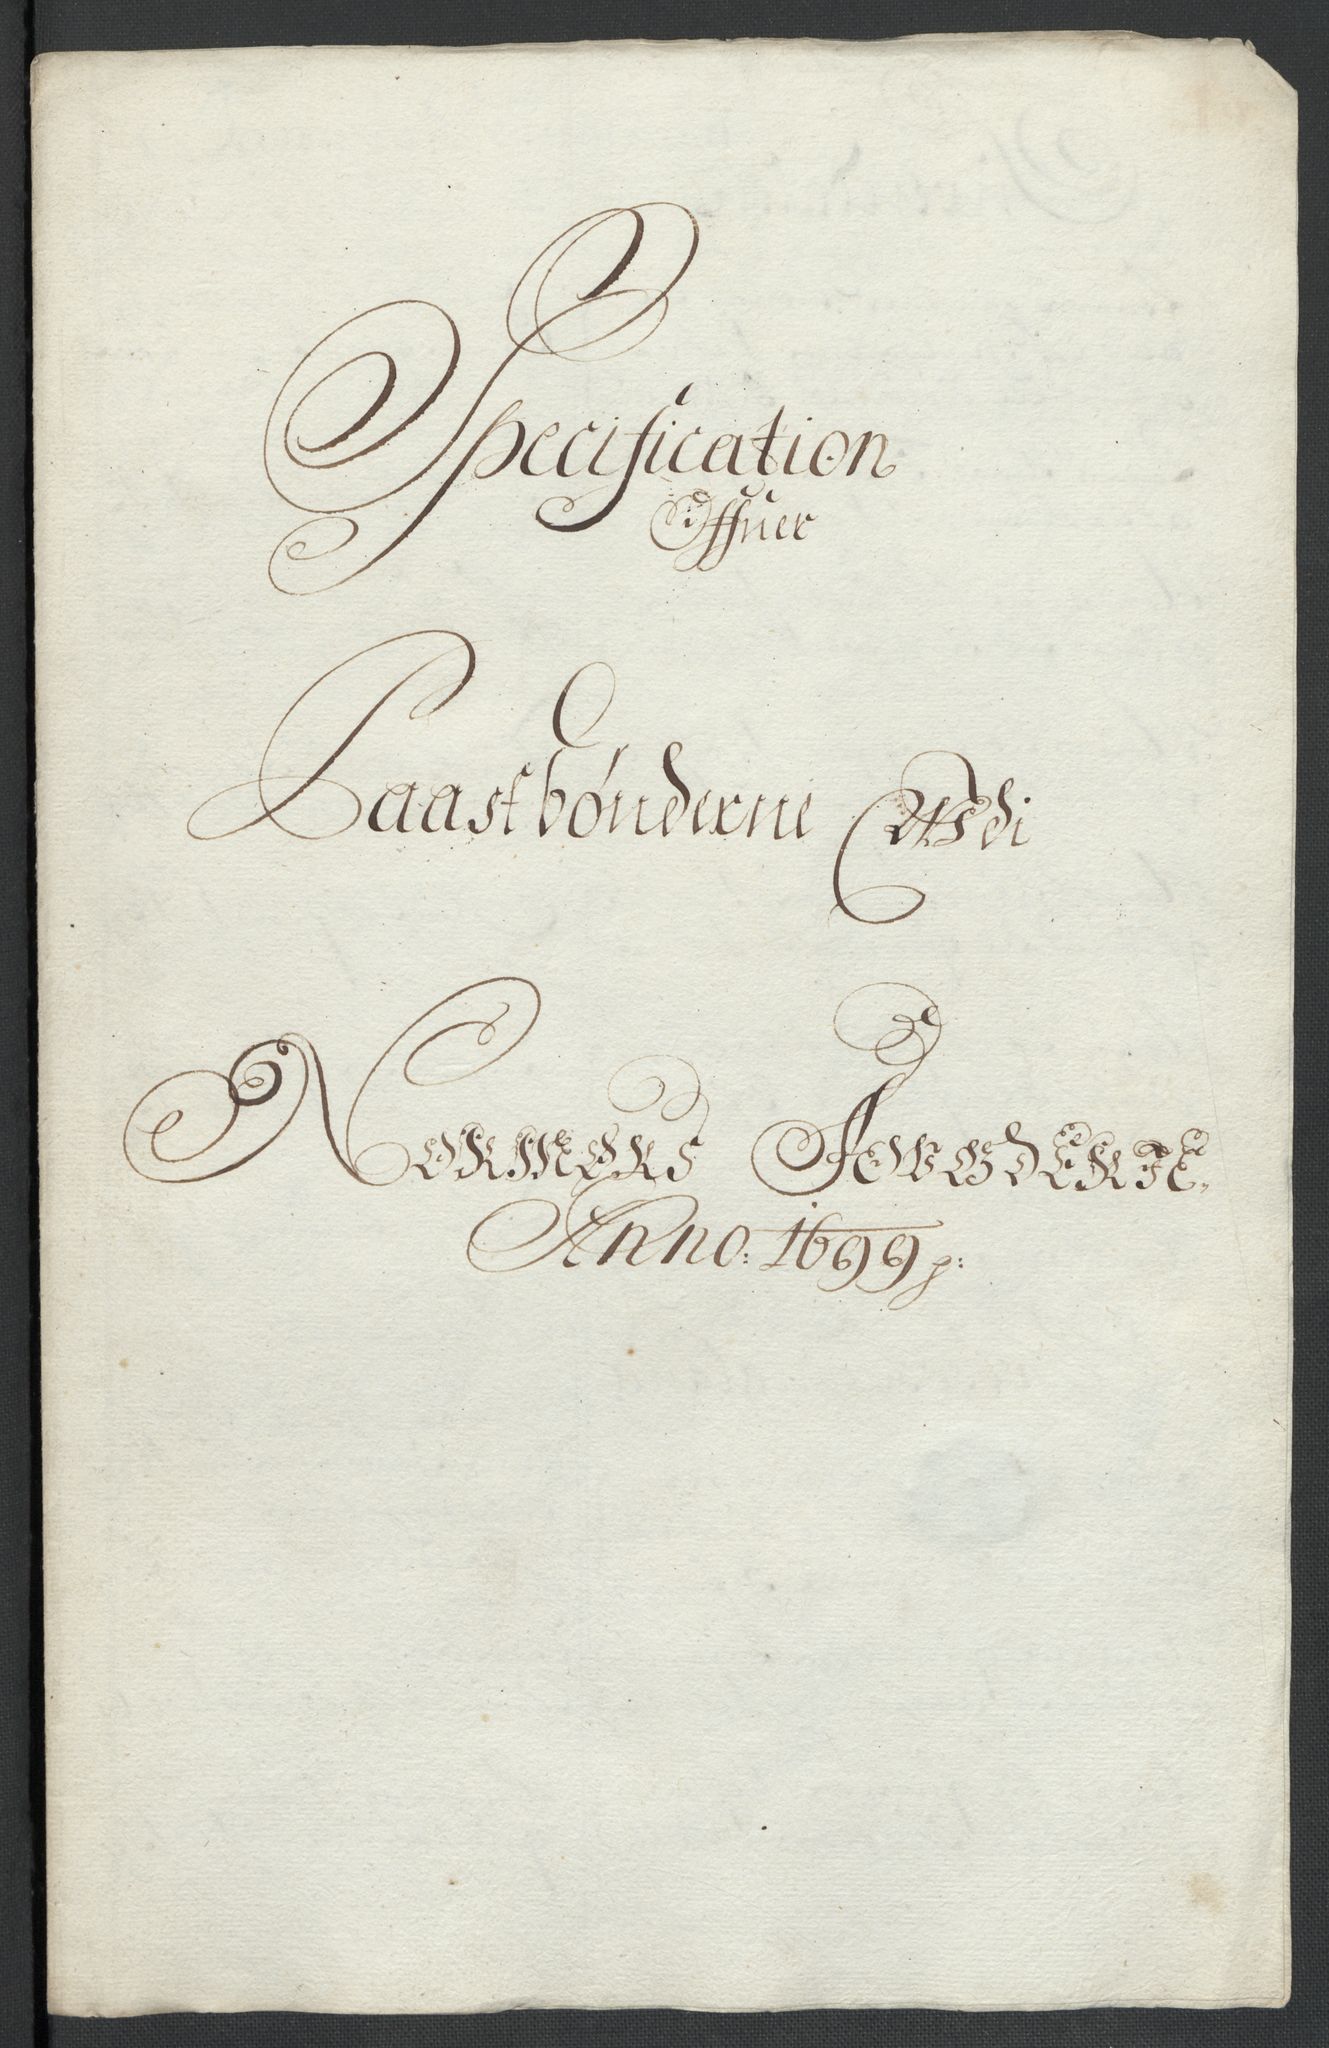 Specification
Offuer
Laastbønderne Udi
Nordmørs Fougderie
Anno: 1699 p: